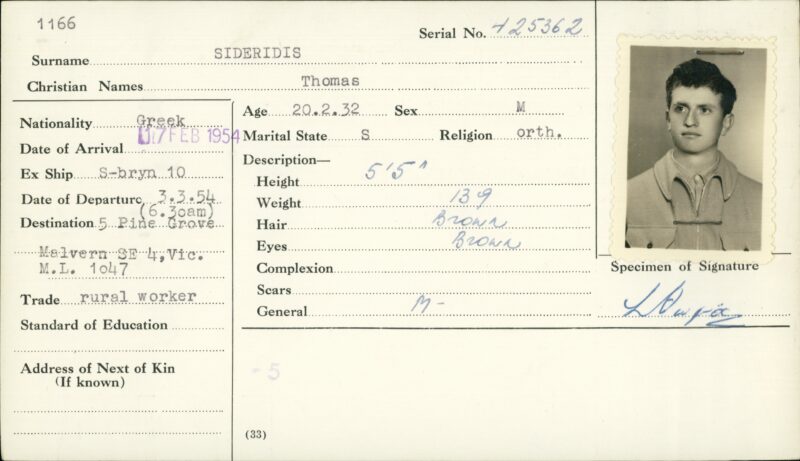 1166
Serial No. 425362
Surname SIDERIDIS
Christian Names Thomas
Nationality Greek
Date of Arrival 17 FEB 1954
Ex Ship S-bryn 10
Date of Departure 3.3.54
(6.30am)
Destination 5 Pine Grove
Malvern SE 4, Vic.
M.L. 1047
Trade rural worker
Standard of Education
Address of Next of Kin
(If known)
Age 20.2.32 Sex M
Marital State S Religion orth.
Description—
Height 5'5"
Weight 139
Hair Brown
Eyes Brown
Complexion
Scars
General M-
- 5
(33)
Specimen of Signature